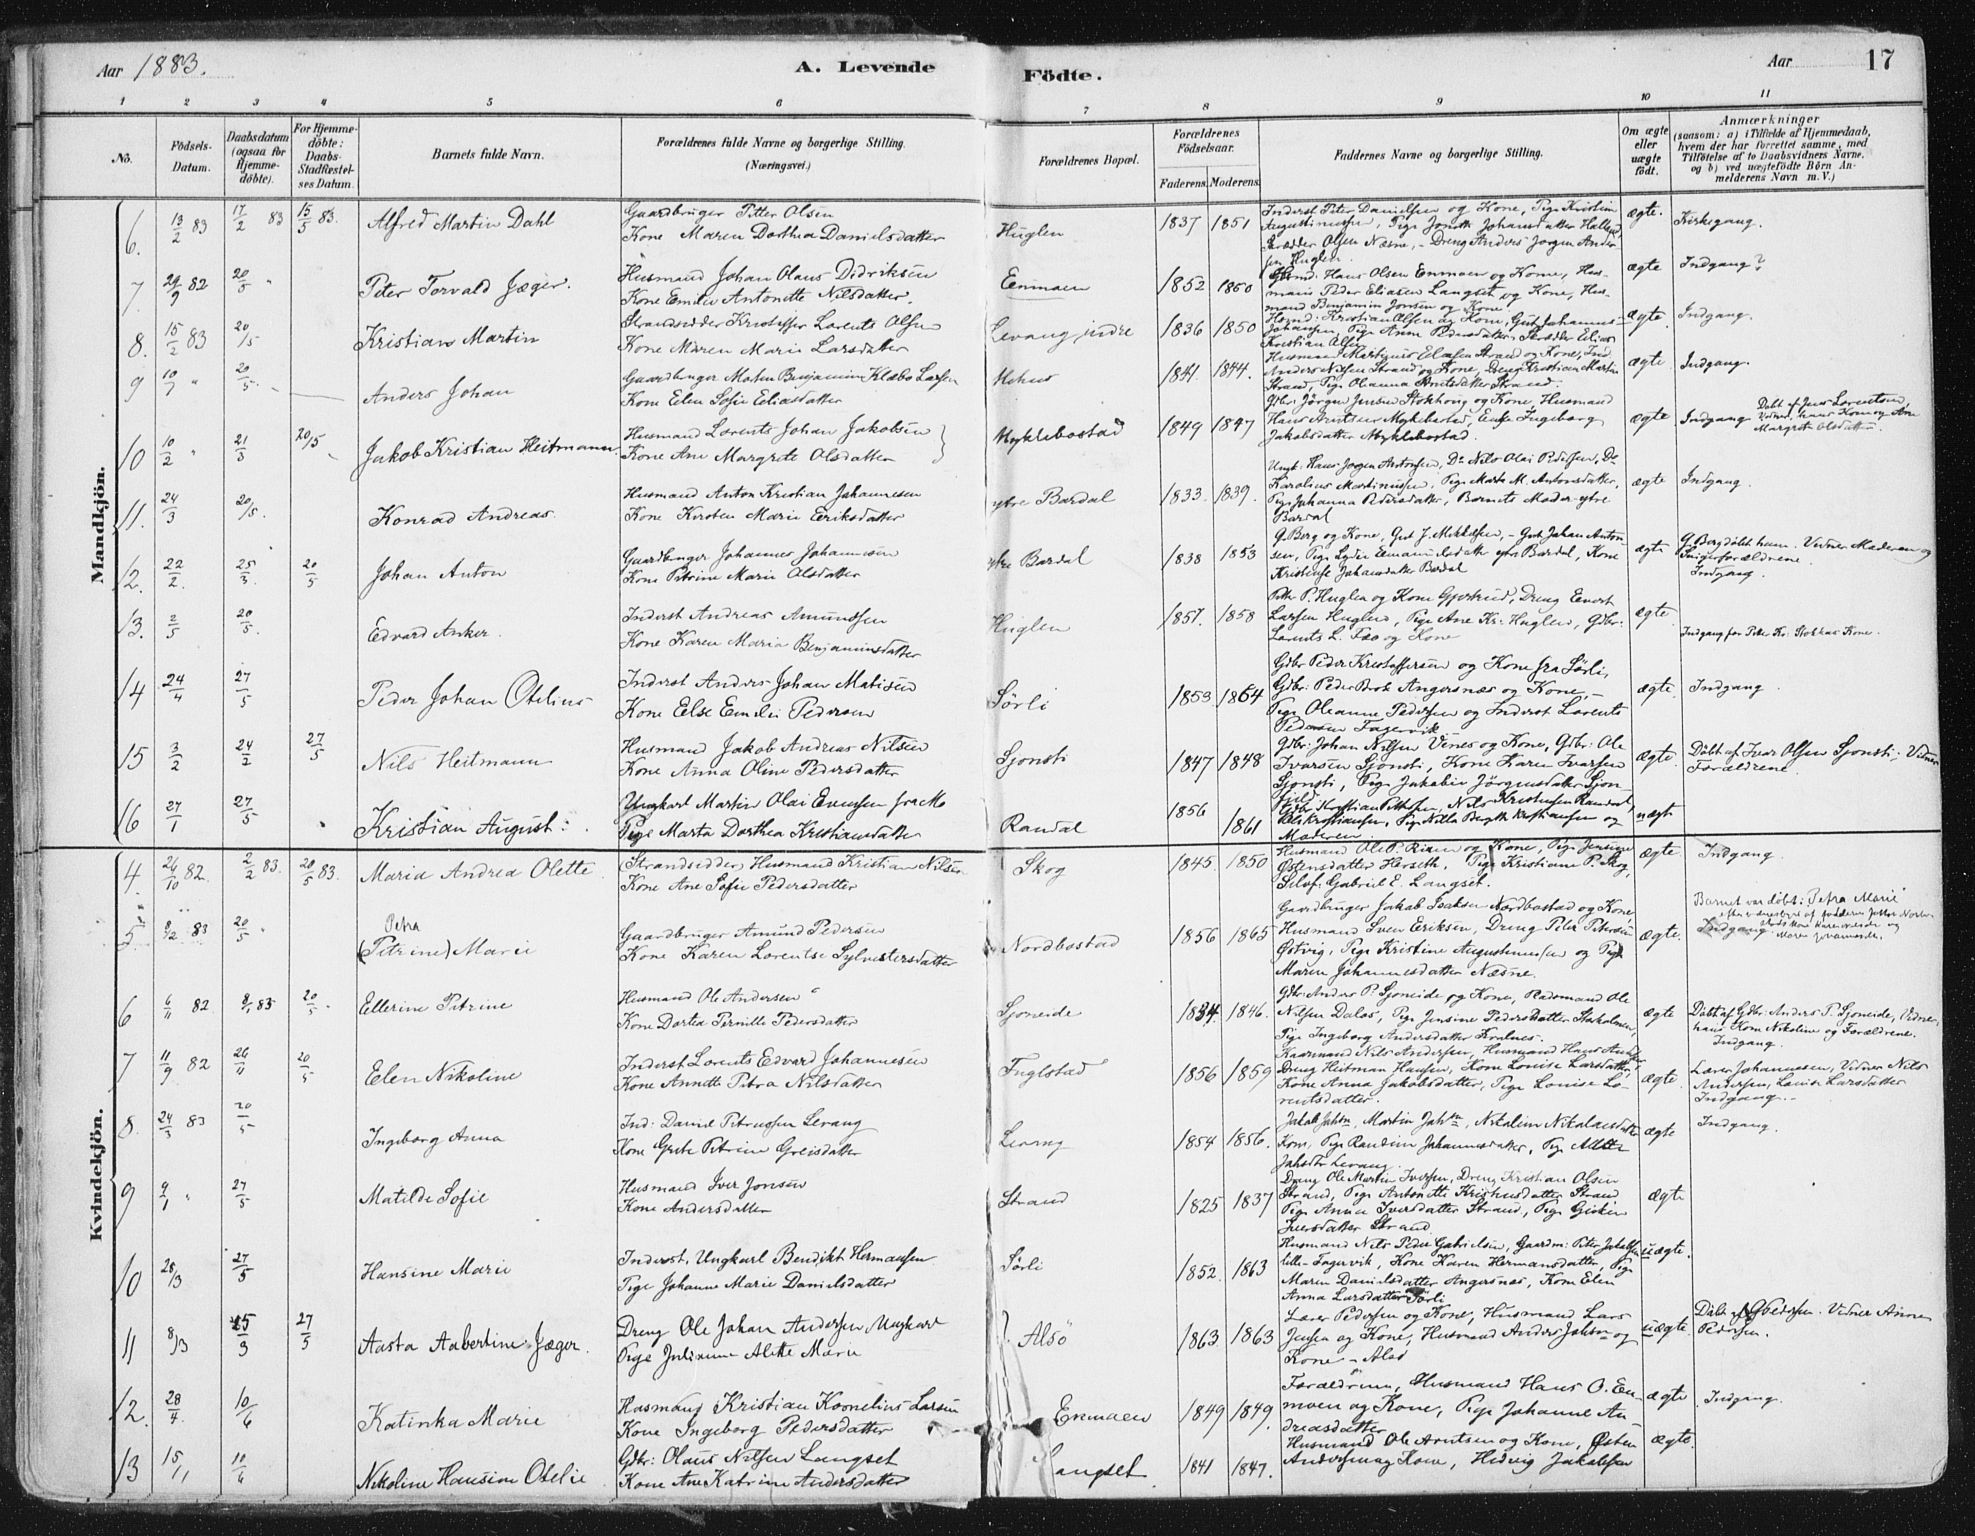 Aar 1883. A. Levende Födte. Aar 17
1 2 3 4 5 6 7 8 9 10 11
No. Födsels-Datum. Daabsdatum (ogsaa for Hjemme-döbte). For Hjemme-döbte: Daabs-Stadfæstel-ses Datum. Barnets fulde Navn. Forældrenes fulde Navne og borgerlige Stilling. (Næringsvei.) Forældrenes Bopæl. Forældrenes Födselsaar. Faderens. Moderens. Faddernes Navne og borgerlige Stilling. Om ægte eller uægte födt. Anmærkninger (saasom: a) i Tilfælde af Hjemmedaab, hvem der har forrettet samme, med Tilföielse af to Daabsvidners Navne, og b) ved uægtefödte Börn An-melderens Navn m. V.)
Mandkjön.
6. 13/2 83 17/2 83 15/5 83. Alfred Martin Dahl
Gaardbruger Petter Olsen
Kone Maren Dorthea Danielsdatter
Huglen 1837 1851
Inderst Peter Danielsen og Kone, Pige Kristine
ægte. Kirkegang.
7. 29/9 82 20/5 " Peter Torvald Jæger.
Husmand Johan Olaus Didriksen
Kone Emilie Antonette Nilsdatter.
Enmoen 1852 1860
Gbmd. Hans Olsen Enmoen og Kone, Hus-
mand Peder Eliasen Langset og Kone, Hus-
mand Benjamin Jonsen og Kone
ægte Indgang?
8. 15/2 83 20/5 Kristian Martin
Strandsidder Kristoffer Lorents Olsen
Kone Maren Marie Larsdatter
Levang indre 1836 1850
Kristian Olsen
ægte. Indgang.
9 10/7 " 20/5 Anders Johan
Gaardbruger Morten Benjamin Klæbo Larsen
Kone Elen Sofie Eliasdatter
1841. 1844.
Anders Nilsen Strand og Kone, Dreng Kristian Martin
Strand, Pige Olianna Arntsdatter Strand.
ægte. Indgang.
10 10/2 " 21/3 20/5 Jakob Kristian Heitmann
Husmand Lorents Johan Jakobsen
Kone Ane Margrete Olsdatter
Myklebostad 1849 1847
Gdbr. Jörgen Jensen Stokhong og Kone, Husmand
Hans Arntsen Myklebostad, Enke Ingeborg
Jakobsdatter Myklebostad.
ægte Indgang Döbt af Jens Lorentsen,
Vidner, hans Kone og Ane
Margrete Olsdatter.
11. 24/3 20/5. Konrad Andreas.
Husmand Anton Kristian Johannesen
Kone Kirsten Marie Eriksdatter
ytre Bardal 1833. 1839.
Ungk. Hans Jörgen Antonsen, Do Nils Olai Pedersen, Do
Karolius Martinussen, Pige Marta M. Antonsdatter,
Pige Johanna Pedersdatter, Barnets Moder ytre
Bardal
ægte Indgang.
12. 22/2. 25/3. 20/5 Johan Anton
Gaardbruger Johannes Johannesen
Kone Petrine Marie Olsdatter
ytre Bardal 1838 1853
G. Berg og Kone, Gut J. Mikkelsen, - Gut Johan Anton-
sen, Pige Lydie Emanuelsdatter ytre Bardal, Kone
Kristense Johansdatter Bardal
ægte G. Berg döbt ham. Vidner Moderen og
Svigerforældrene.
Indgang.
13. 2/5 20/5. Edvard Anker.
Inderst Andreas Amundsen
Kone Karen Maria Benjaminsdatter
Huglen 1857. 1858
Petter P. Huglen og Kone Gjertrud, Dreng Evert
Larsen Huglen, Pige Ane Kr. Huglen, Gdbr.
Lorents L. Fæo og Kone
ægte. Indgang for Peter Kr. Stokkas Kone.
14 24/4 27/5 Peder Johan Otelius
Inderst Anders Johan Matisen
Kone Else Emilie Pedersen
Sörli 1853 1854
Gdbr Peder Kristoffersen og Kone fra Sörli,
Gdbr: Peder Brok Angersnæs og Kone, -
Pige Oleanne Pedersen og Inderst Lorents
Pedersen Fagervik
ægte. Indgang.
15 3/2 24/2 27/5 Nils Heitmann
Husmand Jakob Andreas Nilsen
Kone Anna Oline Pedersdatter
Sjonsti 1847 1848
Gdbr: Johan Nilsen Venes og Kone, Gdbr: Ole
Ivarsen Sjonsti, Kone Karen Ivarsen
Sjonsti, Pige Jakobin Jörgensdatter Sjon-
fjeld
ægte. Döbt af Ivar Olsen Sjonsti, Vidner
Forældrene.
16 27/1 27/5 Kristian August:
Ungkarl Martin Olai Evensen fra Mo
Pige Marta Dorthea Kristiansdatter
Randal 1856 1861
Moderen.
uægt
Kvindekjön.
4. 26/10 82. 2/2 83. 20/5 83. Maria Andrea Olette.
(Strandsidder) Husmand Kristian Nilsen
Kone Ane Sofie Pedersdatter
Skog 1845. 1850
Husmand Ole P. Risen og Kone, Pige Jensine
Östensdatter Herseth, Pige Kristiane P. Skog,
Selvf. Gabriel E. Langset.
ægte. Indgang.
5 8/2 83 20/5 Petra (Petrine) Marie
Gaardbruger Amund Pedersen
Kone Karen Lorentse Sylvestersdatter
Nordbostad 1856 1865
Gaardbruger Jakob Isaksen Nordbostad og Kone,
Husmand Sven Eriksen, Dreng Peter Petersen
Östvig, Pige Kristine Augustinussen og Pige
Maren Johannesdatter Næsne.
ægte. Barnet var döbt: "Petra Marie"
Indgang.
6 6/11 82 8/1 83 20/5. Ellerine Petrine
Husmand Ole Andersen
Kone Dortea Pernille Pedersdatter
Sjoneide 1834. 1846.
Gdbr. Anders P. Sjoneide og Kone, Radsmand Ole
Nilsen Dalos, Pige Jensine Pedersdatter Stokholmen,
Pige Ingeborg Andersdatter
ægte Döbt af Gdbr: Anders P. Sjoneide, Vidner,
hans Kone Nikoline og Forældrene.
Indgang.
7 11/9 82 26/11 20/5 Elen Nikoline
Inderst Lorents Edvard Johannesen
Kone Annette Petra Nilsdatter
Fuglstad 1856 1859
Kaarmand Nils Andersen, Husmand Hans Andersen,
Dreng Heitman Hansen, Kone Louise Larsdatter,
Kone Anna Jakobsdatter, Pige Louise Lo-
rentsdatter.
ægte. Lærer Johannessen, Vidner Nils
Andersen, Louise Larsdatter
Indgang.
8. 24/3 83 20/5 Ingeborg Anna
Ind: Daniel Petrussen Levang
Kone Grete Petrine Greisdatter
Levang 1854 1856.
Kone, Pige Randine Johannesdatter, Pige Mette
Jahsdtr Levang.
ægte Indgang.
9 9/1 " 27/5 Matilde Sofie
Husmand Iver Jonsen
Kone Andersdatter
Strand 1825 1837
Dreng Ole Martin Iversen, Dreng Kristian Olsen
Strand, Pige Antonette Kristensdatter Strand,
Pige Anna Iversdatter Strand, Pige Gisken
Iversdatter Strand
ægte
10 28/3 27/5 Hansine Marie
Inderst, Ungkarl Bendikt Hermansen
Pige Johanne Marie Danielsdatter
Sörli 1852. 1863
Husmand Nils Peder Gabrielsen, Gaardm: Peter Jakobsen
lille-Fagervik, Kone Karen Hermansdatter, Pige
Maren Danielsdatter Angersnæs, Kone Elen
Anna Larsdatter Sörli
uægte.
11 8/3 15/3 27/5 Aasta Aabertine Jæger.
Dreng Ole Johan Andersen Ungkarl
Pige Julianne Alette Marie
Alsö 1863. 1863
Lærer Pedersen og Kone, Husmand Lars
Jensen og Kone, Husmand Anders Johsen og
Kone - Alsö
uægte Döbt af Pedersen. Vidner Anne
Pedersen.
12. 28/4. 10/6 Katinka Marie
Husmand Kristian Kornelius Larsen
Kone Ingeborg Pedersdatter
Enmoen 1849 1849.
Forældrene, Husmand Hans O. En-
moen og Kone, Pige Johanne An-
dreasdatter
ægte Indgang.
13 15/11 10/6 Nikoline Hansine Otelie
Gdbr: Olaus Nilsen Langset
Kone Ane Katrine Andersdatter
Langset 1841 1847.
Husmand Ole Arntsen og Kone, Östen
Andersen og Kone, Hedvig Jakobsen
ægte.